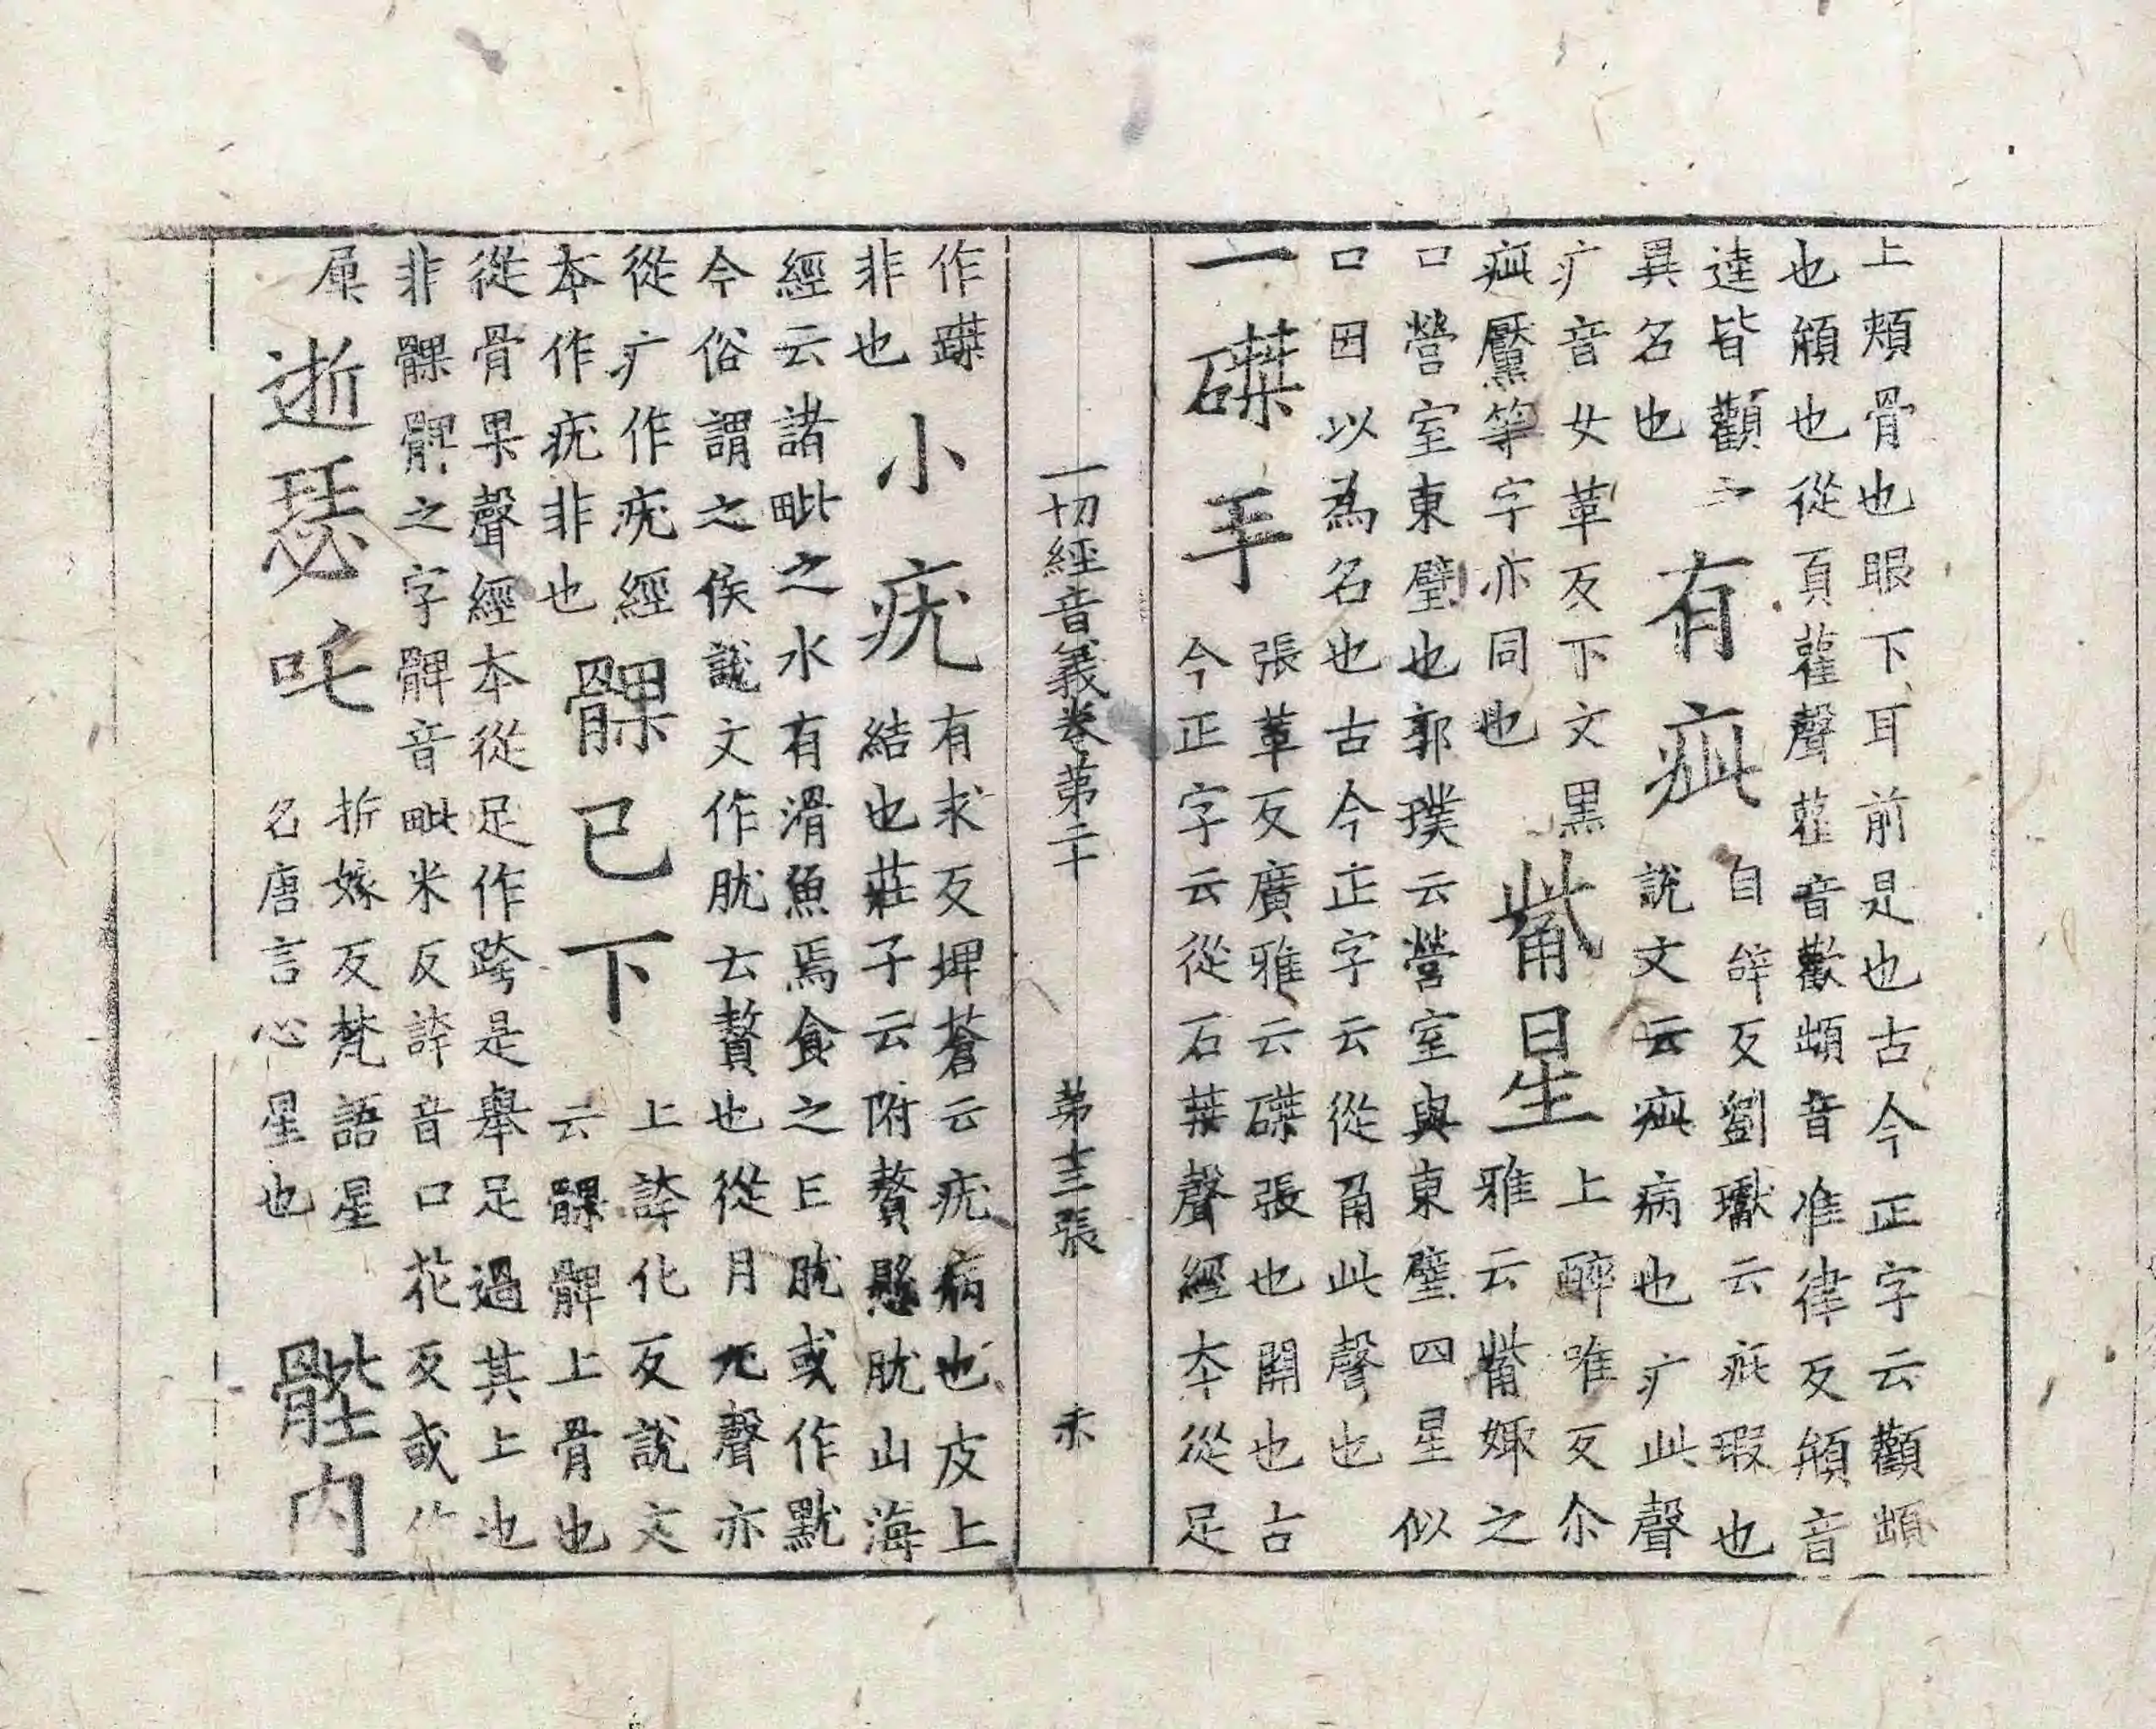 上頰骨也眼下耳前是也古今正字云顴䪼
也頄也從頁雚聲雚音歡䪼音准律反頄音
逵皆顴之
異名也
有疵
自雌反劉瓛云疵瑕也
說文云疵病也疒此聲
疒音女革反下文黑
疵黶等字亦同也
觜星
上醉唯反尒
雅云觜娵之
口營室東壁也郭璞云營室與東壁四星似
口因以為名也古今正字云從角此聲也
一磔手
張革反廣雅云磔張也開也古
今正字云從石桀聲經本從足
一切經音義卷第二十 第十三張
作蹀
非也
小疣
有求反埤蒼云疣病也皮上
結也莊子云附贅懸肬山海
經云諸毗之水有滑魚焉食之已肬或作黖
今俗謂之侯說文作肬云贅也從月尤聲亦
從疒作疣經
本作疣非也
髁已下
上誇化反說文
云髁髀上骨也
從骨果聲經本從足作跨是舉足過其上也
非髁髀之字髀音毗米反誇音口花反或作
𡱂
逝瑟吒
折嫁反梵語星
名唐言心星也
髀內